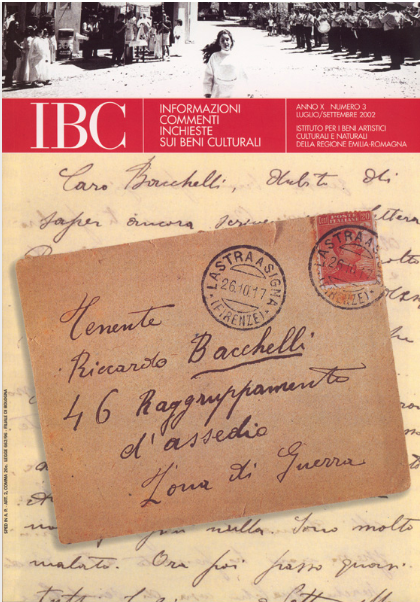 IBC
INFORMAZIONI
COMMENTI
INCHIESTE
SUI BENI CULTURALI
ANNO X NUMERO 3
LUGLIO/SETTEMBRE 2002
ISTITUTO PER I BENI ARTISTICI
CULTURALI E NATURALI
DELLA REGIONE EMILIA-ROMAGNA
Caro Bacchelli, dubito di
saper ancora scrivere lettera
POSTE ITALIANE
LASTRA A SIGNA
26.10.17
(FIRENZE)
LASTRA A SIGNA
26.10
(FIRENZE)
Tenente
Riccardo Bacchelli
46 Raggruppamento
d'assedio
Zona di Guerra
nulla. Sono molto
malato. Ora poi passo quasi
tutti
SPED. IN A. P. - ART. 2, COMMA 20/c, LEGGE 662/96 - FILIALE DI BOLOGNA